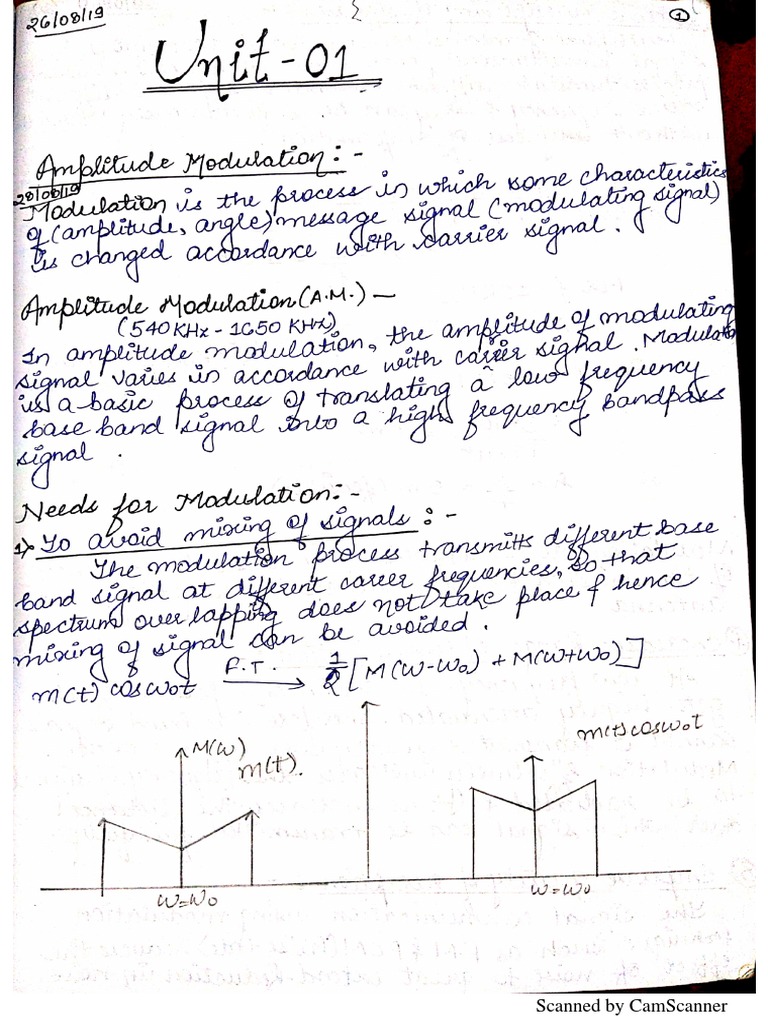 26/08/19
1
Unit-01
Amplitude Modulation:-
28/08/19
Modulation is the process in which some characteristics
of (amplitude, angle) message signal (modulating signal)
is changed accordance with carrier signal.
Amplitude Modulation (A.M.) —
(540 KHz - 1650 KHz)
In amplitude modulation, the amplitude of modulating
signal varies in accordance with career signal. Modulat
is a basic process of translating a low frequency
base band signal into a high frequency bandpass
signal.
Needs for Modulation:-
1) To avoid mixing of signals :-
The modulation process transmitts different base
band signal at different career frequencies, so that
spectrum over lapping does not take place & hence
mixing of signal can be avoided.
m(t) cosω₀t F.T. → 1/2 [M(ω-ω₀) + M(ω+ω₀)]
M(ω)
m(t).
m(t)cosω₀t
ω=ω₀
ω=ω₀
Scanned by CamScanner